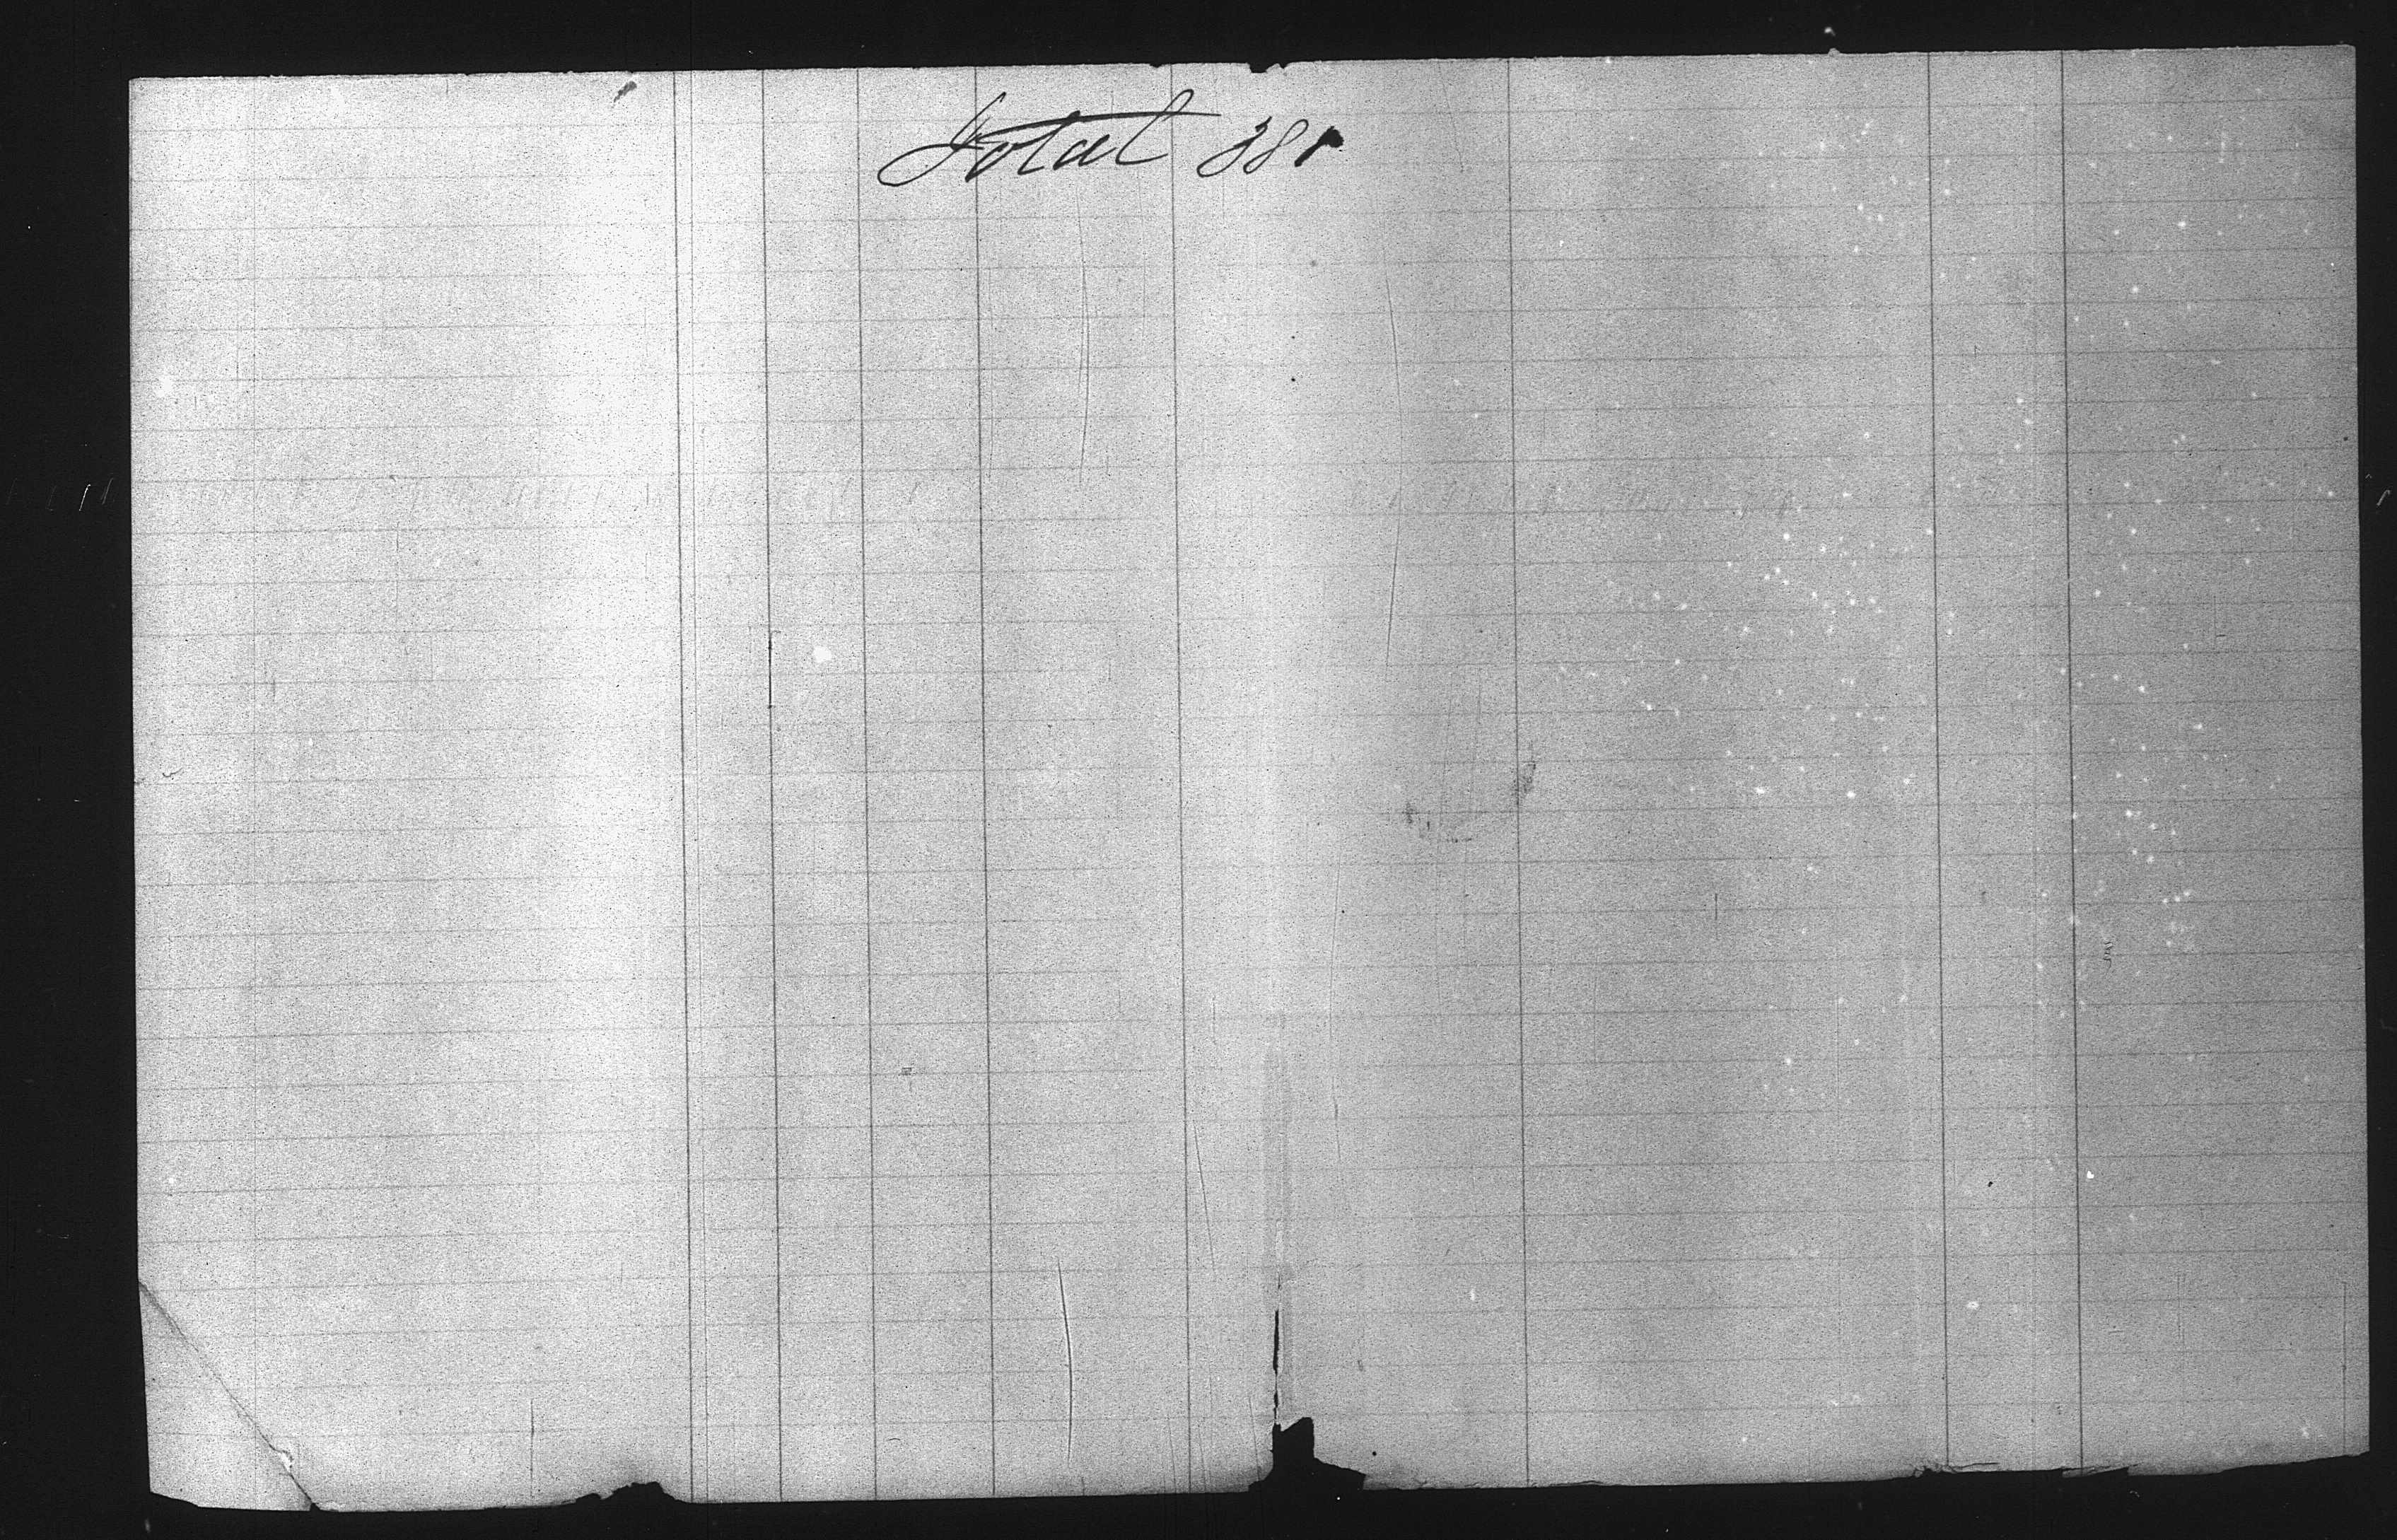 Total 381